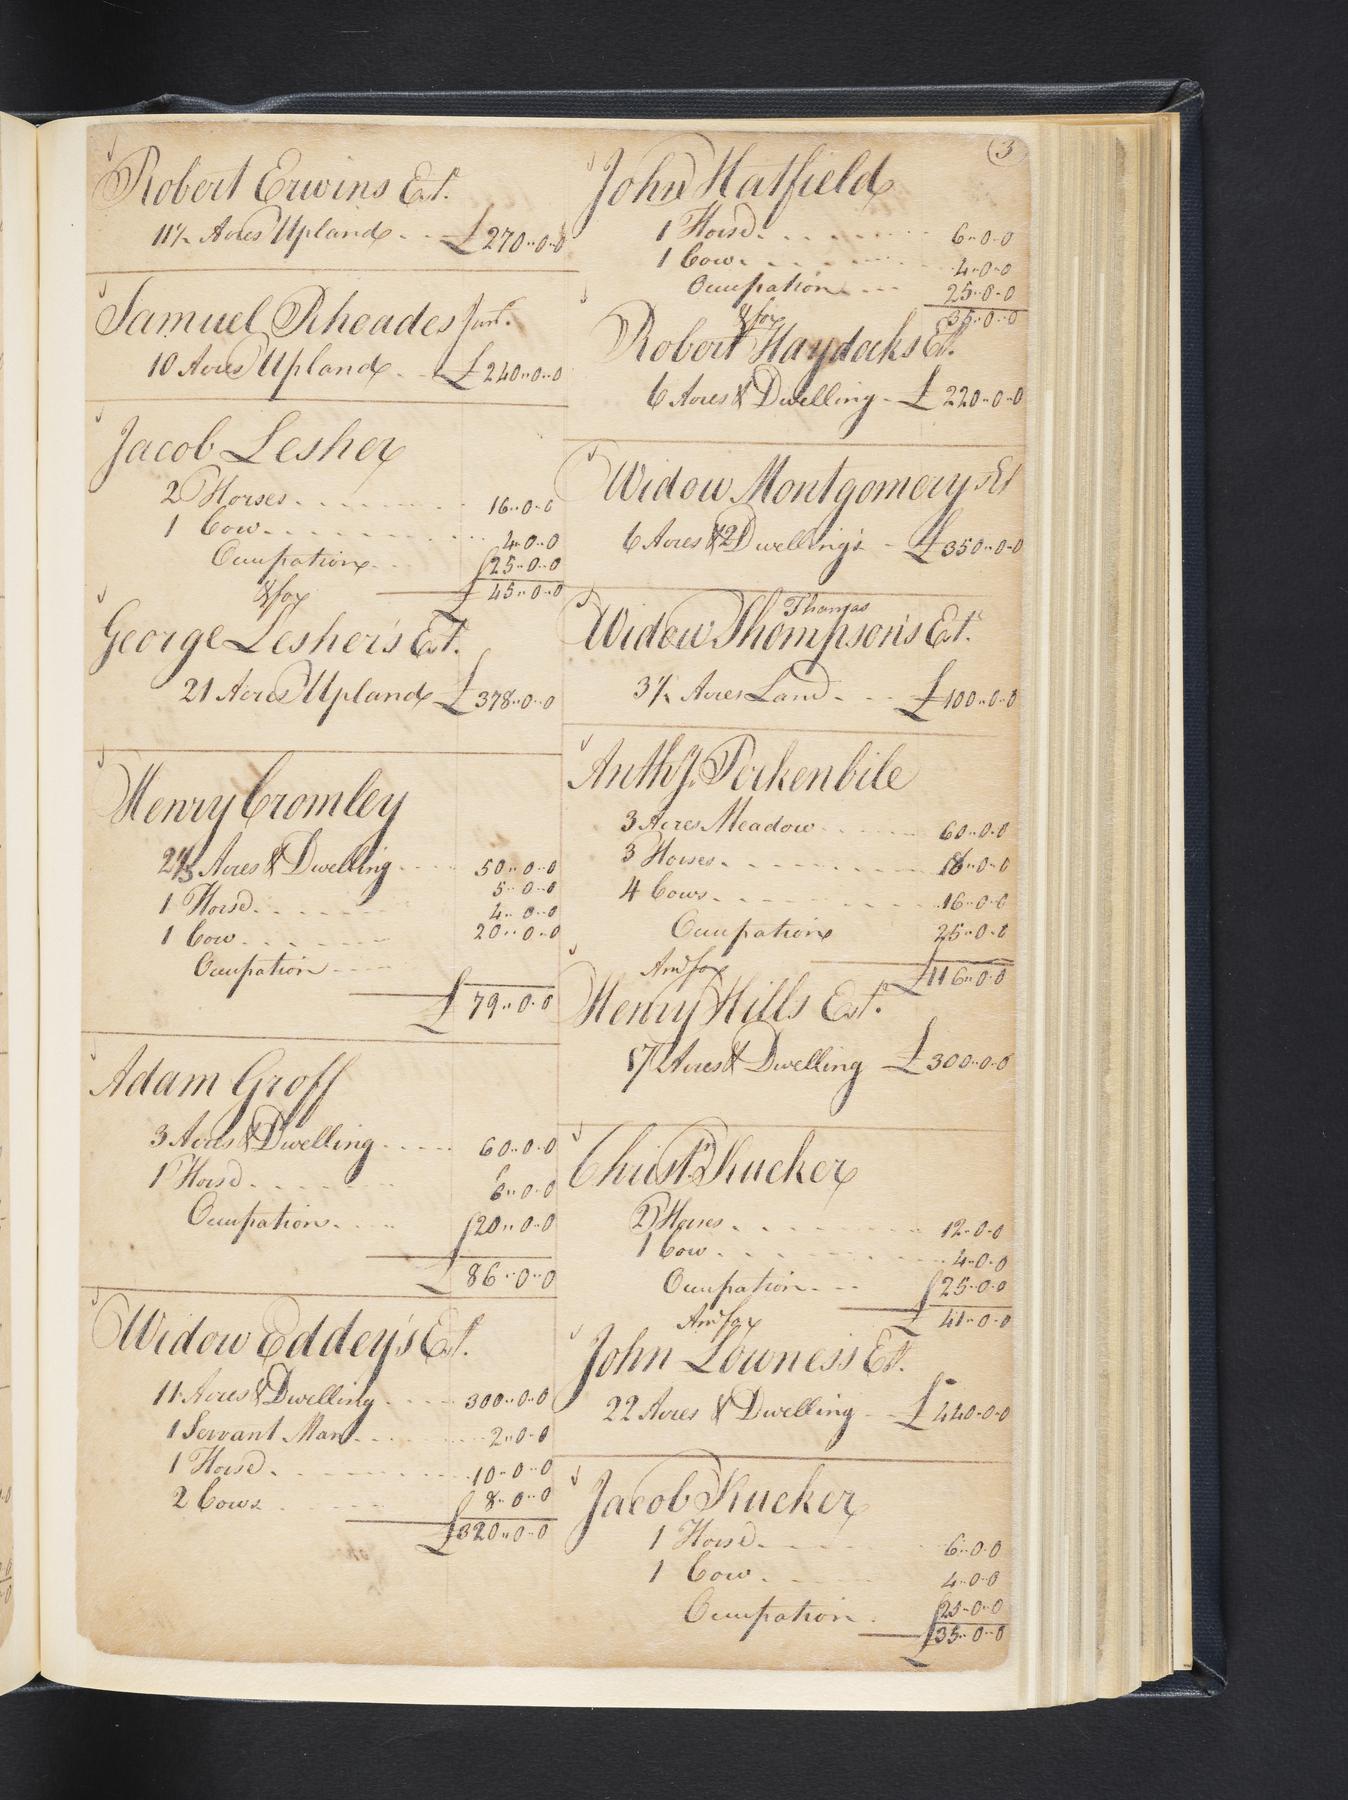 3
Robert Erwins Est.
11½ Acres Upland - - £270..0..0
Samuel Rhoades Junr.
10 Acres Upland - £240..0..0
Jacob Lesher
2 Horses - - - - 16..0..0
1 Cow - - - - 4..0..0
Occupation - - 25..0..0
& for £45..0..0
George Lesher's Est.
21 Acres Upland £378..0..0
Henry Cromley
Acres & Dwelling - - 50..0..0
1 Horse - - - 5..0..0
1 Cow - - - 4..0..0
Occupation - - - 20..0..0
£79..0..0
Adam Groff
3 Acres & Dwelling - - - 60..0..0
1 Horse - - - - 6..0..0
Occupation - - - 20..0..0
£86..0..0
Widow Eddey's Est.
11 Acres & Dwelling - - - 300..0..0
1 Servant Man - - - 2..0..0
1 Horse - - - - 10..0..0
2 Cows - - - 8..0..0
£320..0..0
John Hatfield
1 Horse - - - - 6..0..0
1 Cow - - - - 4..0..0
Occupation - - - 25..0..0
& for 35..0..0
Robert Haydocks Est.
6 Acres & Dwelling - £220..0..0
Widow Montgomery Est
6 Acres & 2 Dwelling's - £350..0..0
Thomas
Widow Thompson's Est.
3½ Acres Land - - - £100..0..0
Anthy. Perkenbile
3 Acres Meadow - - - 60..0..0
3 Horses - - - - 18..0..0
4 Cows - - - - 16..0..0
Occupation 25..0..0
And for £116..0..0
Henry Hills Est.
17 Acres & Dwelling £300..0..0
Christn. Kucker
2 Horses - - - - 12..0..0
1 Cow - - - - 4..0..0
Occupation - - - 25..0..0
And for £41..0..0
John Lowness Est.
22 Acres & Dwelling - £440..0..0
Jacob Kucker
1 Horse - - - - 6..0..0
1 Cow - - - 4..0..0
Occupation - 25..0..0
£35..0..0